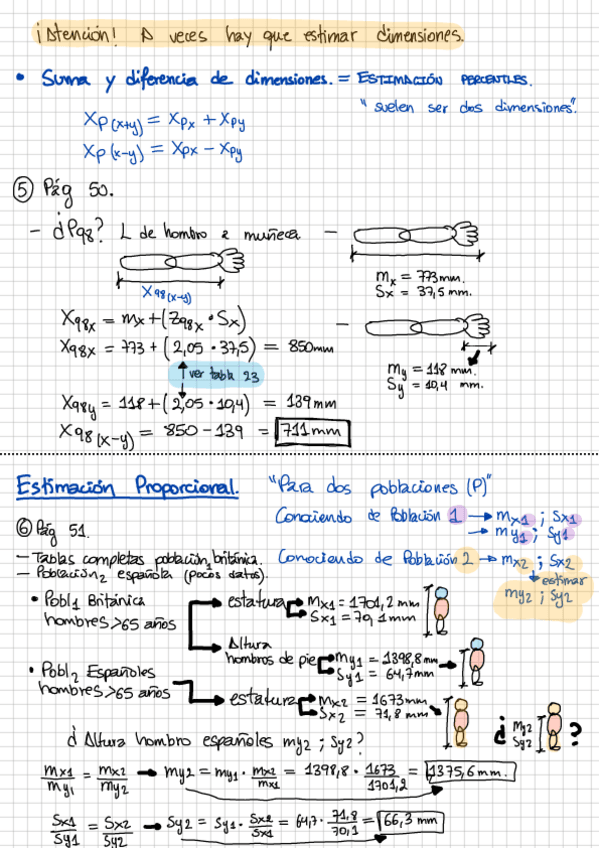 ¡Atención! A veces hay que estimar dimensiones.
• Suma y diferencia de dimensiones. = ESTIMACIÓN PERCENTILES.
"suelen ser dos dimensiones".
Xp(x+y) = Xpx + Xpy
Xp(x-y) = Xpx - Xpy
⑤ Pág 50.
- ¿P98? L de hombro a muñeca -
X98(x-y)
mx = 773mm.
Sx = 37,5 mm.
X98x = mx + (Z98x • Sx)
X98x = 773 + (2,05 • 37,5) = 850mm
ver tabla 23
my = 118 mm.
Sy = 10,4 mm.
X98y = 118 + (2,05 • 10,4) = 139mm
X98(x-y) = 850 - 139 = 711mm
Estimación Proporcional. "Para dos poblaciones (P)"
Conociendo de Población 1 → mx1 ; Sx1
→ my1 ; Sy1
⑥ Pág 51.
- Tablas completas población1 británica.
Conociendo de Población 2 → mx2 ; Sx2
- Población2 española (pocos datos)
estimar
my2 ; Sy2
• Pobl1 Británica
hombres >65 años
estatura
mx1 = 1701,2 mm
Sx1 = 70,1 mm
Altura
hombros de pie
my1 = 1398,8mm
Sy1 = 64,7mm
• Pobl2 Españoles
hombres >65 años
estatura
mx2 = 1673mm
Sx2 = 71,8 mm
¿ my2 Sy2 ?
¿Altura hombro españoles my2 ; Sy2?
mx1/my1 = mx2/my2 → my2 = my1 • mx2/mx1 = 1398,8 • 1673/1701,2 = 1375,6mm.
Sx1/Sy1 = Sx2/Sy2 → Sy2 = Sy1 • Sx2/Sx1 = 64,7 • 71,8/70,1 = 66,3 mm